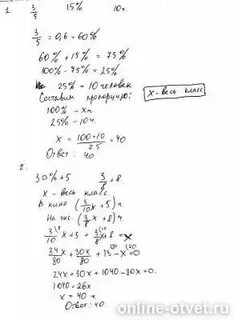 1. 3/5 15% 10ч.
3/5 = 0,6 = 60%
60% + 15% = 75%
100% - 75% = 25%
25% = 10 человек
Составим пропорцию:
x - весь класс
100% - xч
25% - 10ч
x = 100*10/25 = 40
Ответ: 40
2.
30% + 5 3/8 + 8
x - весь класс
В кино (3/10x + 5) ч.
(3/8x + 8) ч.
3/10x + 5 + 3/8x + 8 = x
24x/80 + 30x/80 + 13 - x = 0
24x + 30x + 1040 - 80x = 0
1040 = 26x
x = 40 ч
Ответ: 40
online-otvet.ru